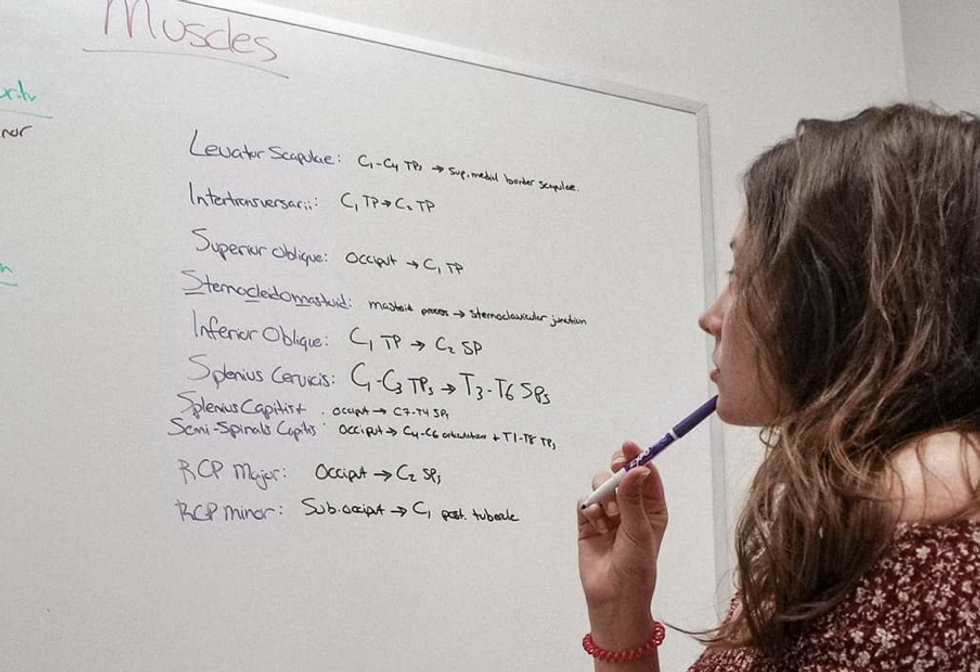 Muscles
nor
Levator Scapulae: C₁-C₄ TPs → sup. medial border scapulae.
Intertransversarii: C₁ TP → C₂ TP
Superior Oblique: Occiput → C₁ TP
Sternocleidomastoid: mastoid process → sternoclavicular junction
Inferior Oblique: C₁ TP → C₂ SP
Splenius Cervicis: C₁-C₃ TPs → T₃-T₆ SPs
Splenius Capitis+ : occiput → C7-T4 SPs
Semi-Spinalis Capitis occiput → C4-C6 articulation + T1-T8 TPs
RCP Major: Occiput → C₂ SPs
RCP minor: Sub.occiput → C₁ post. tubercle